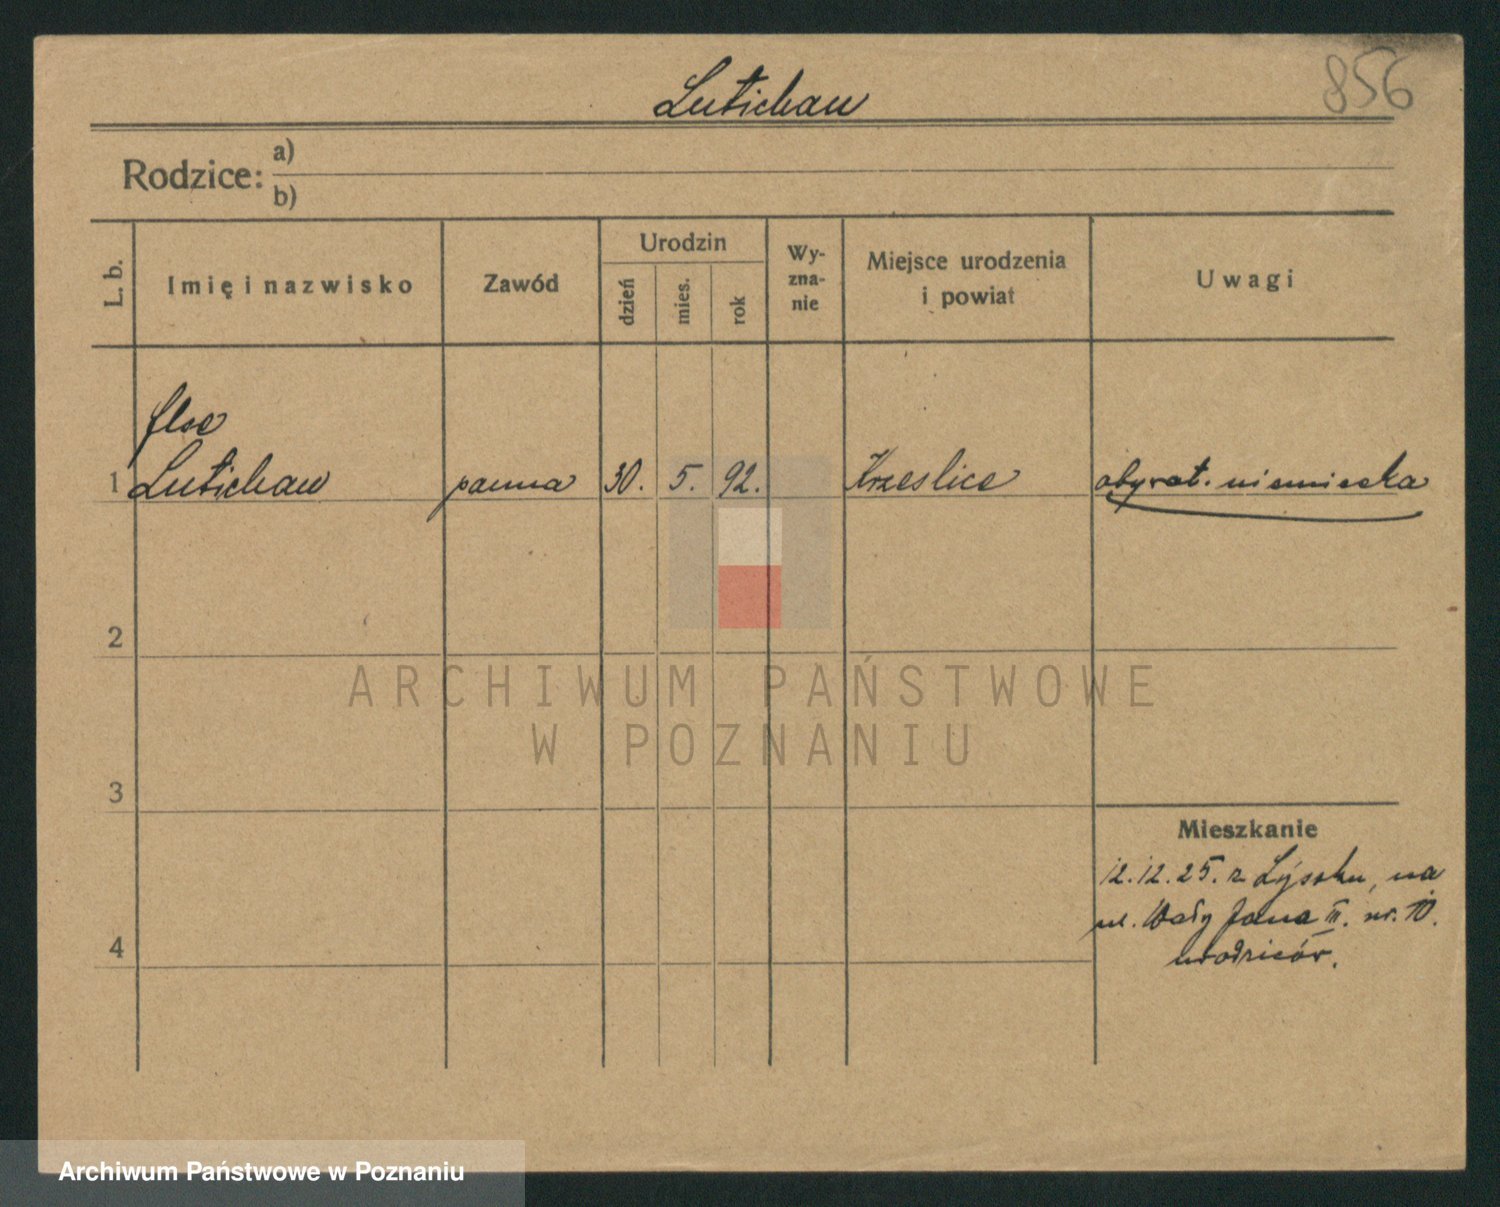 Lutichau
856
Rodzice:
a)
b)
L. b.
Imię i nazwisko
Zawód
Urodzin
dzień
mies.
rok
Wy-
zna-
nie
Miejsce urodzenia
i powiat
Uwagi
Else
1 Lutichau panna 30. 5. 92. Krzeslice obywat. niemiecka
2
ARCHIWUM PAŃSTWOWE
W POZNANIU
3
Mieszkanie
12.12.25. z Lýsoku, na
ul. Wały Jana III. nr. 10.
u rodziców.
4
Archiwum Państwowe w Poznaniu